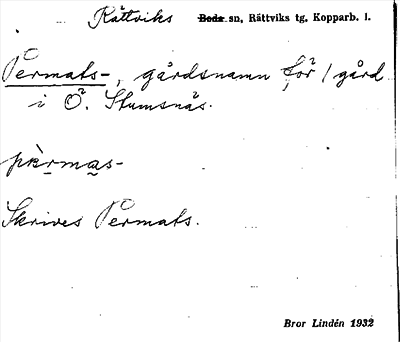 Rättviks Boda sn, Rättviks tg, Kopparb. l.
Permats-, gårdsnamn för 1 gård
i Ö. Stumsnäs.
pèrmas-
Skrives Permats.
Bror Lindén 1932